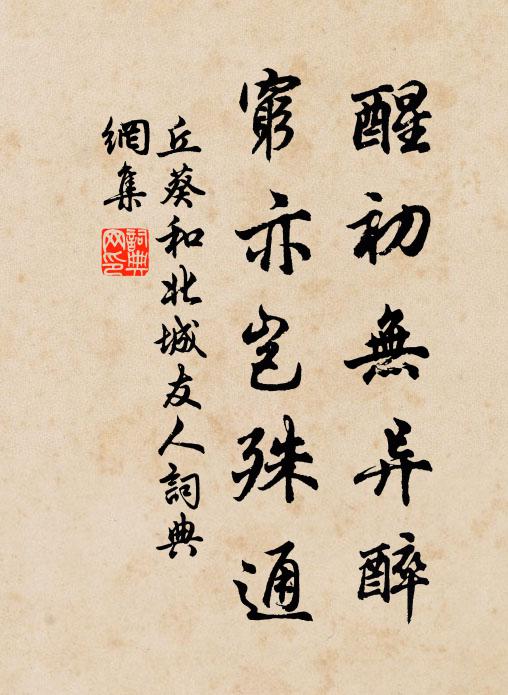 醒初無异醉
窮亦豈殊通
丘葵和北城友人詞典
網集
詞典
网印